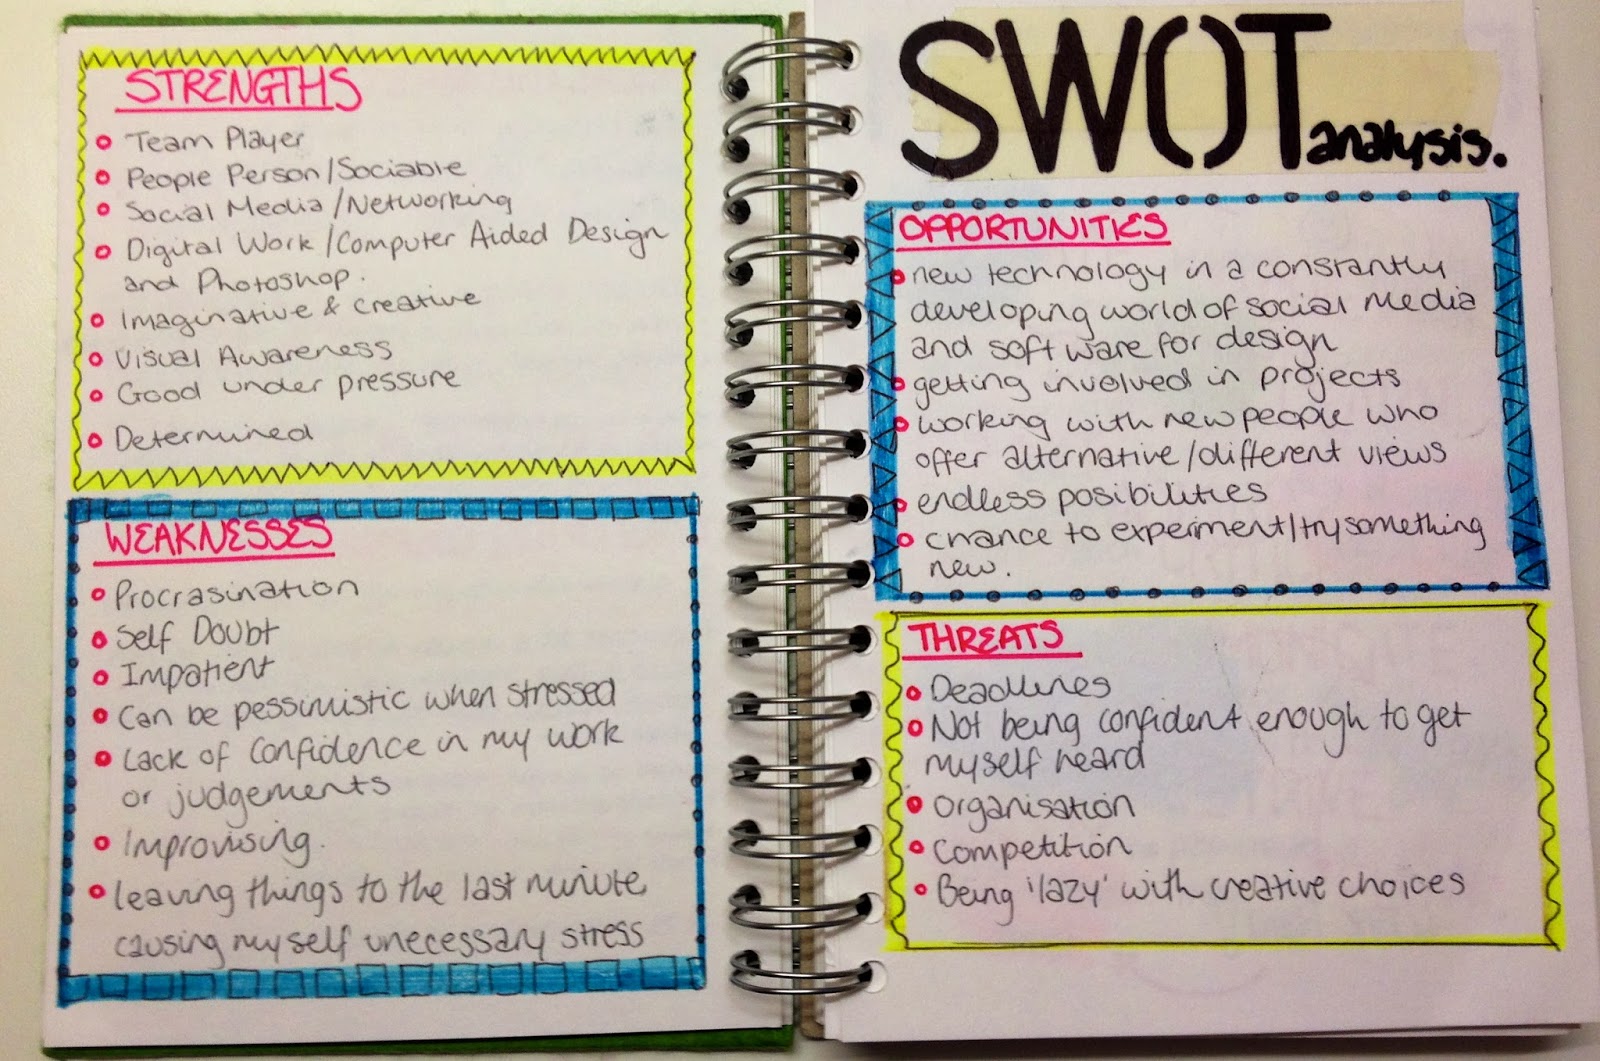 STRENGTHS
Team Player
People Person/Sociable
Social Media/Networking
Digital Work/Computer Aided Design
and Photoshop.
Imaginative & creative
Visual Awareness
Good under pressure
Determined
WEAKNESSES
Procrasination
Self Doubt
Impatient
Can be pessimistic when stressed
Lack of confidence in my work
or judgements
Improvising.
leaving things to the last minute
causing myself unecessary stress
SWOT analysis.
OPPORTUNITIES
new technology in a constantly
developing world of social Media
and software for design
getting involved in projects
working with new people who
offer alternative/different views
endless posibilities
chance to experiment/try something
new.
THREATS
Deadlines
Not being confident enough to get
myself heard
Organisation
Competition
Being 'lazy' with creative choices